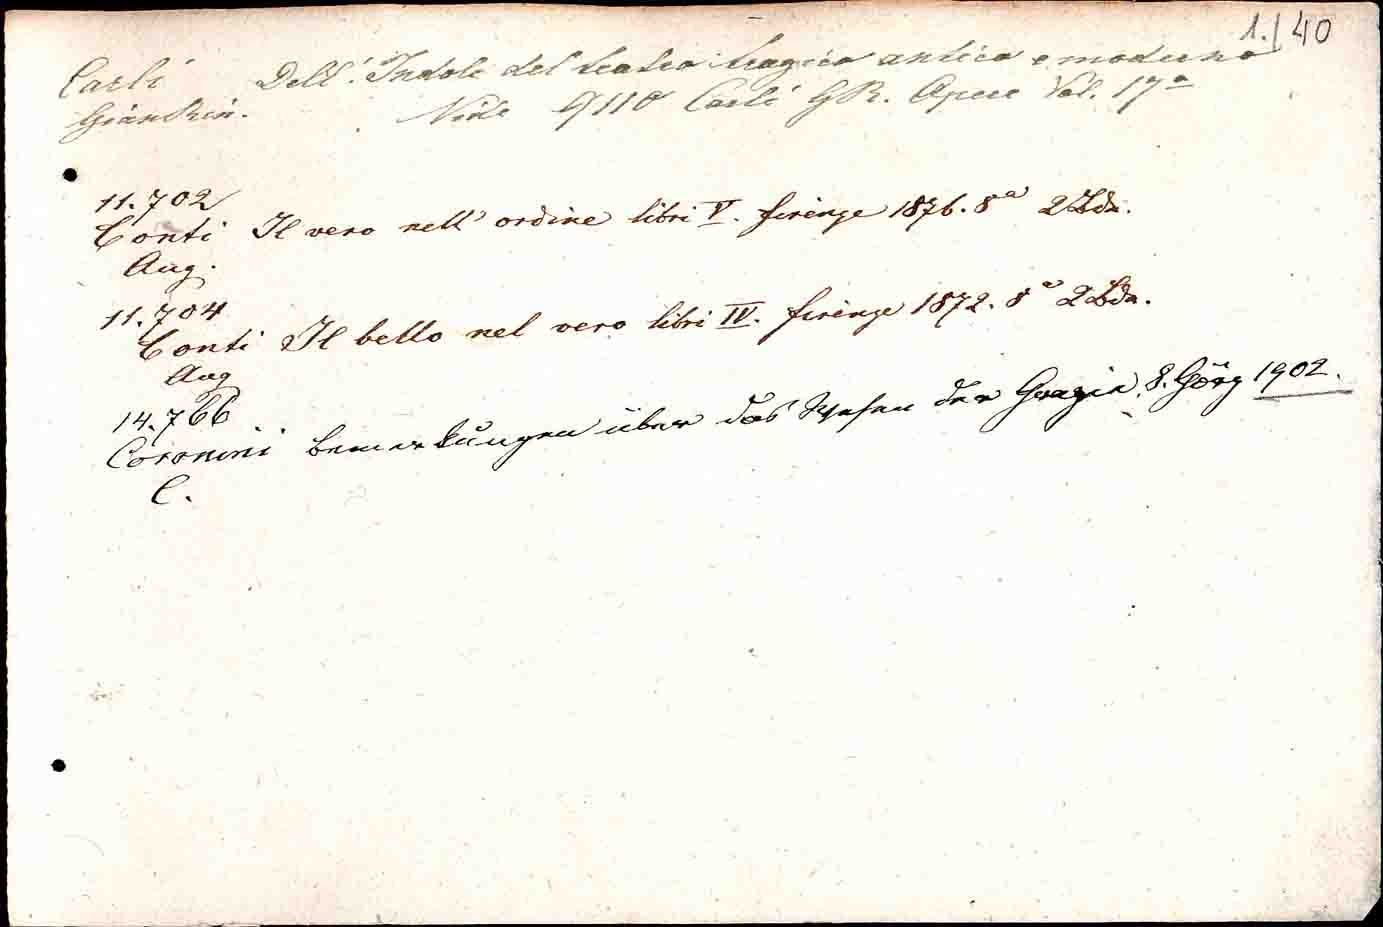 1.|40
Carli Dell'Indole del teatro tragico antico e moderno
Gian Rin. Vide 9110 Carli GR. Opere Vol. 17º
11.702
Conti Il vero nell' ordine libri V. firenze 1876. 8º 2 Bde.
Aug.
11.704
Conti Il bello nel vero libri IV. firenze 1872. 8º 2 Bde.
Aug
14.766
Coronini Bemerkungen über das Wesen der Grazie. 8. Görz 1902.
C.